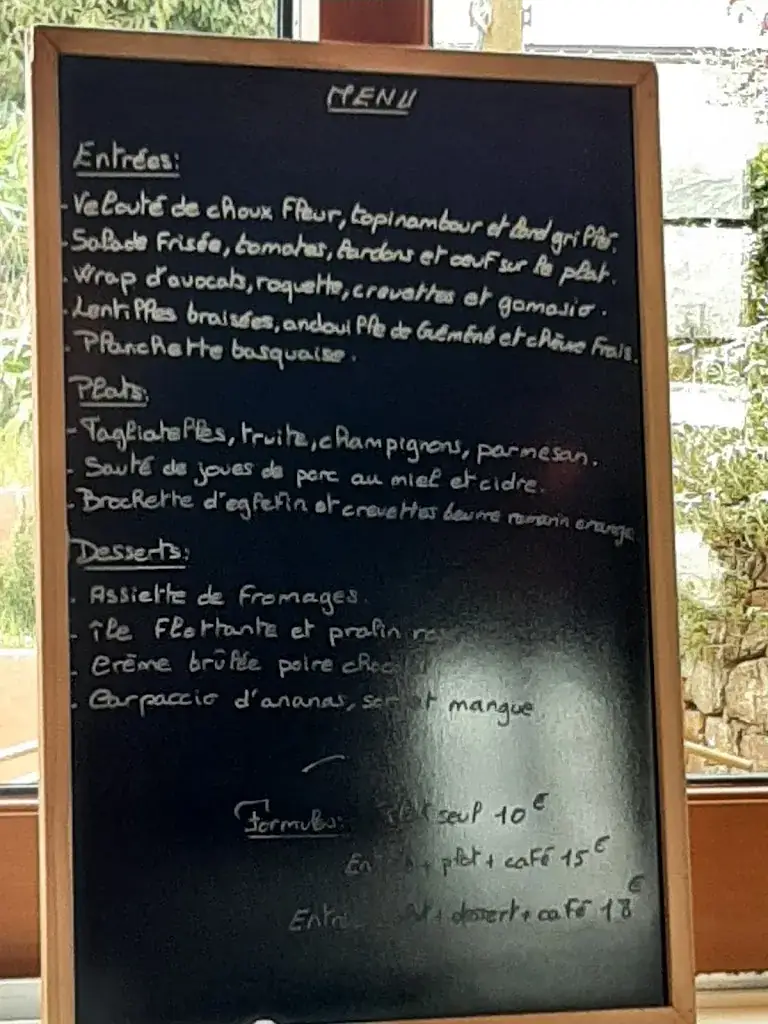 MENU
Entrées:
- Velouté de choux fleur, topinambour et lard griller.
- Salade Frisée, tomates, lardons et oeuf sur le plat.
- Wrap d'avocats, roquette, crevettes et gomasio.
- Lentilles braisées, andouille de Guémené et chèvre frais.
- Planchette basquaise.
Plats:
- Tagliatelles, truite, champignons, parmesan.
- Sauté de joues de porc au miel et cidre.
- Brochette d'eglefin et crevettes beurre romarin orange
Desserts:
- Assiette de fromages.
- île flottante et pralin
- Crème brûlée poire
- Carpaccio d'ananas, mangue
Formules: seul 10€
+ plat + café 15€
+ dessert + café 18€